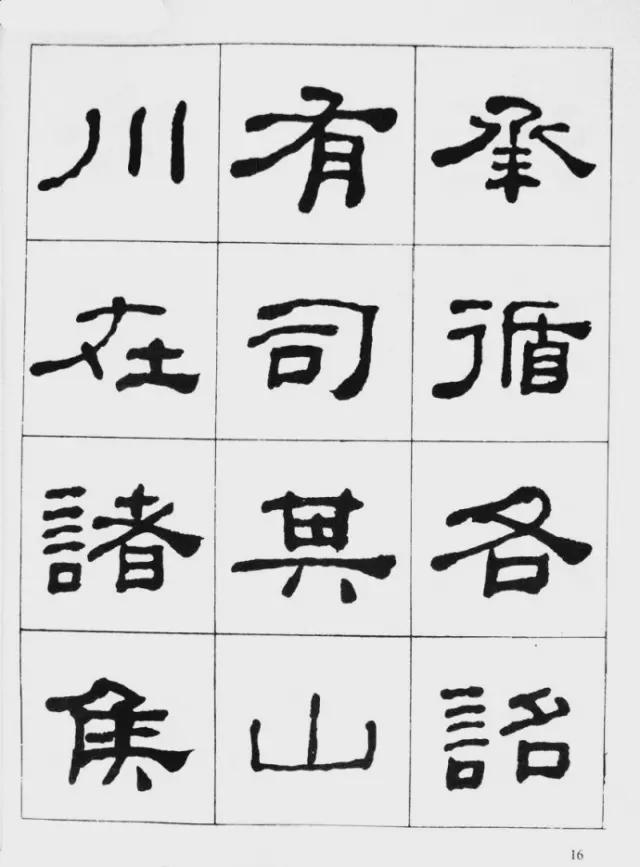 承循各詔
有司其山
川在諸侯
16